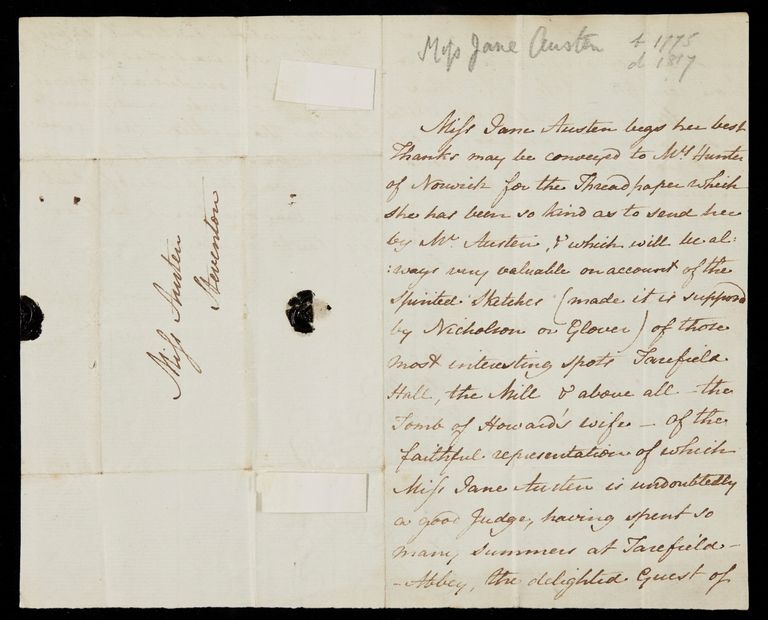 Miss Jane Austen b 1775
d 1817
Miss Austen
Steventon
Miss Jane Austen begs her best
Thanks may be conveyed to Mrs Hunter
of Norwich for the Threadpaper which
she has been so kind as to send her
by Mr Austen, & which will be al:
:ways very valuable on account of the
spirited Sketches (made it is supposed
by Nicholson or Glover) of those
most interesting spots Tarefield
Hall, the Mill & above all - the
Tomb of Howard's wife - of the
faithful representation of which
Miss Jane Austen is undoubtedly
a good Judge, having spent so
many summers at Tarefield -
-Abbey, the delighted Guest of